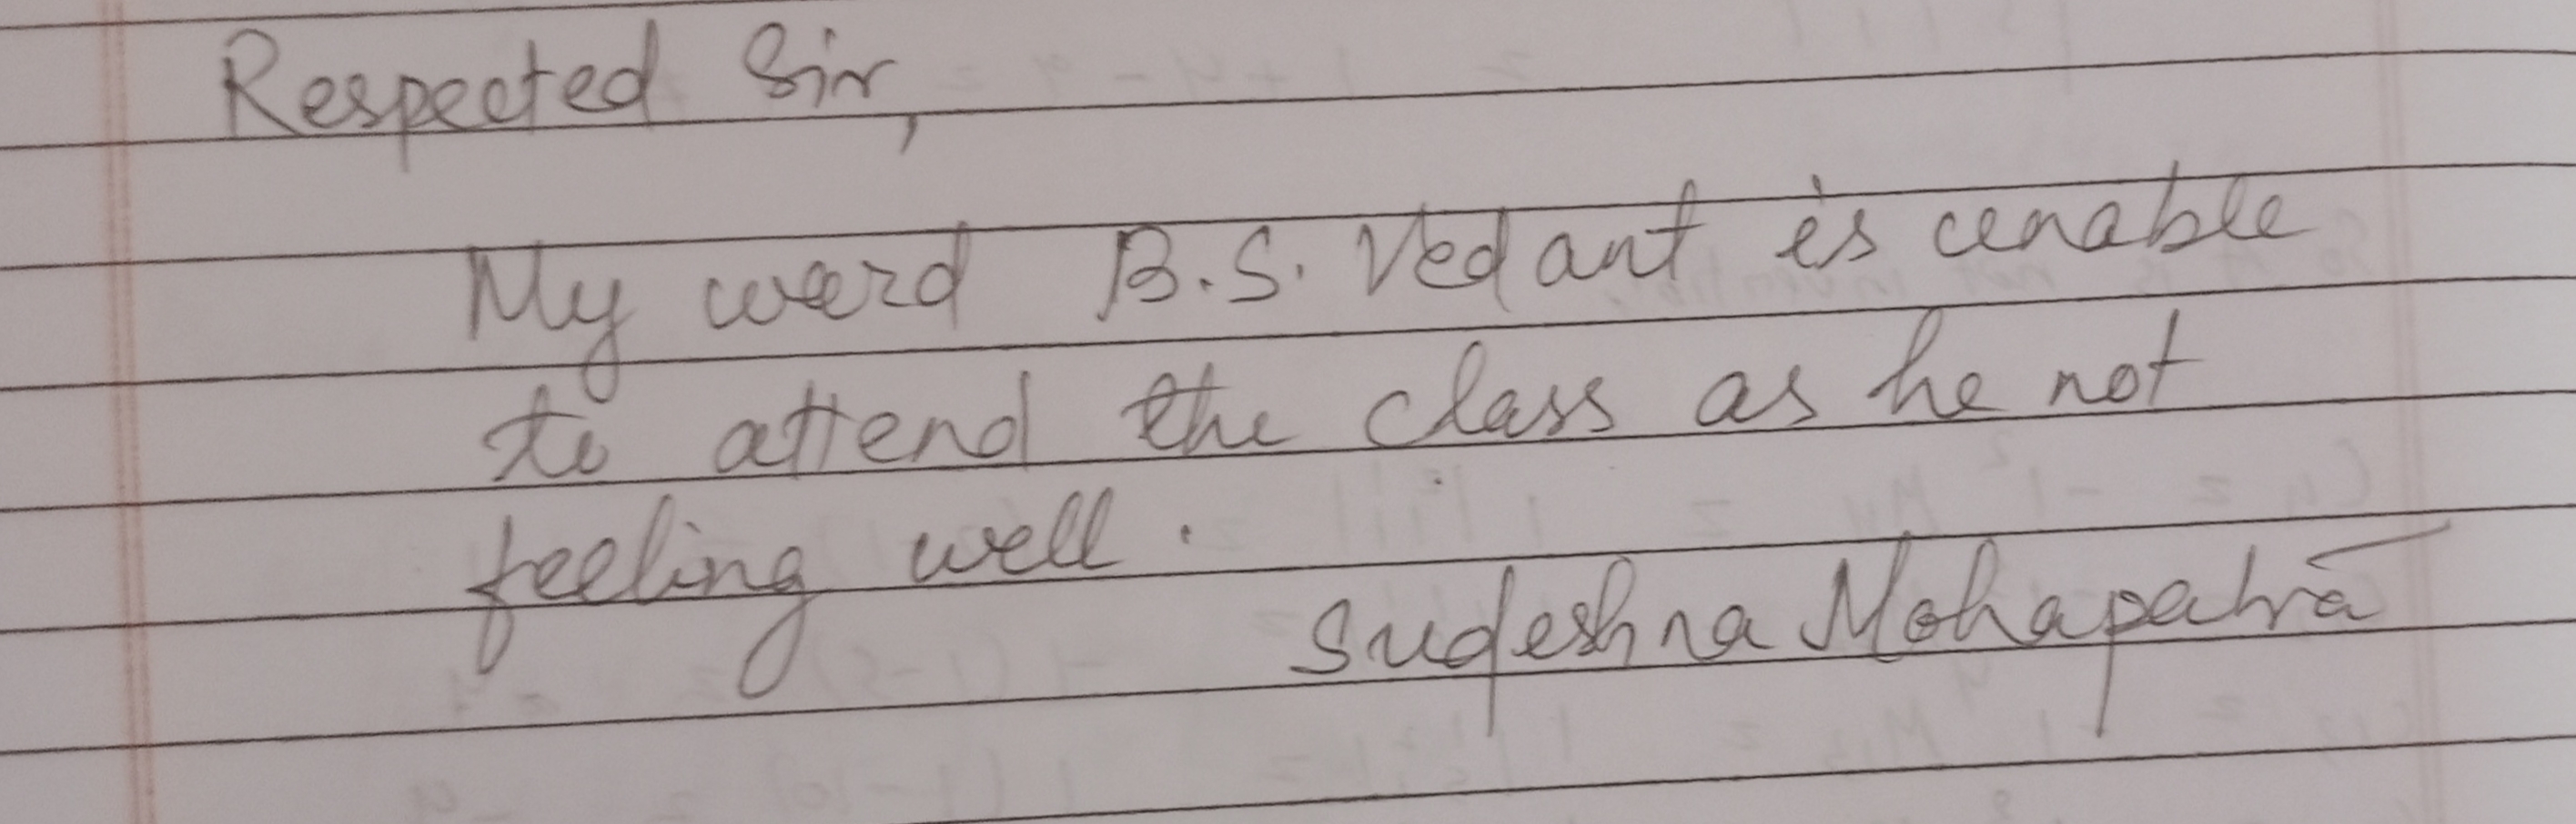 Respected Sir,
My ward B.S. Vedant is unable
to attend the class as he not
feeling well.
Sudeshna Mohapatra